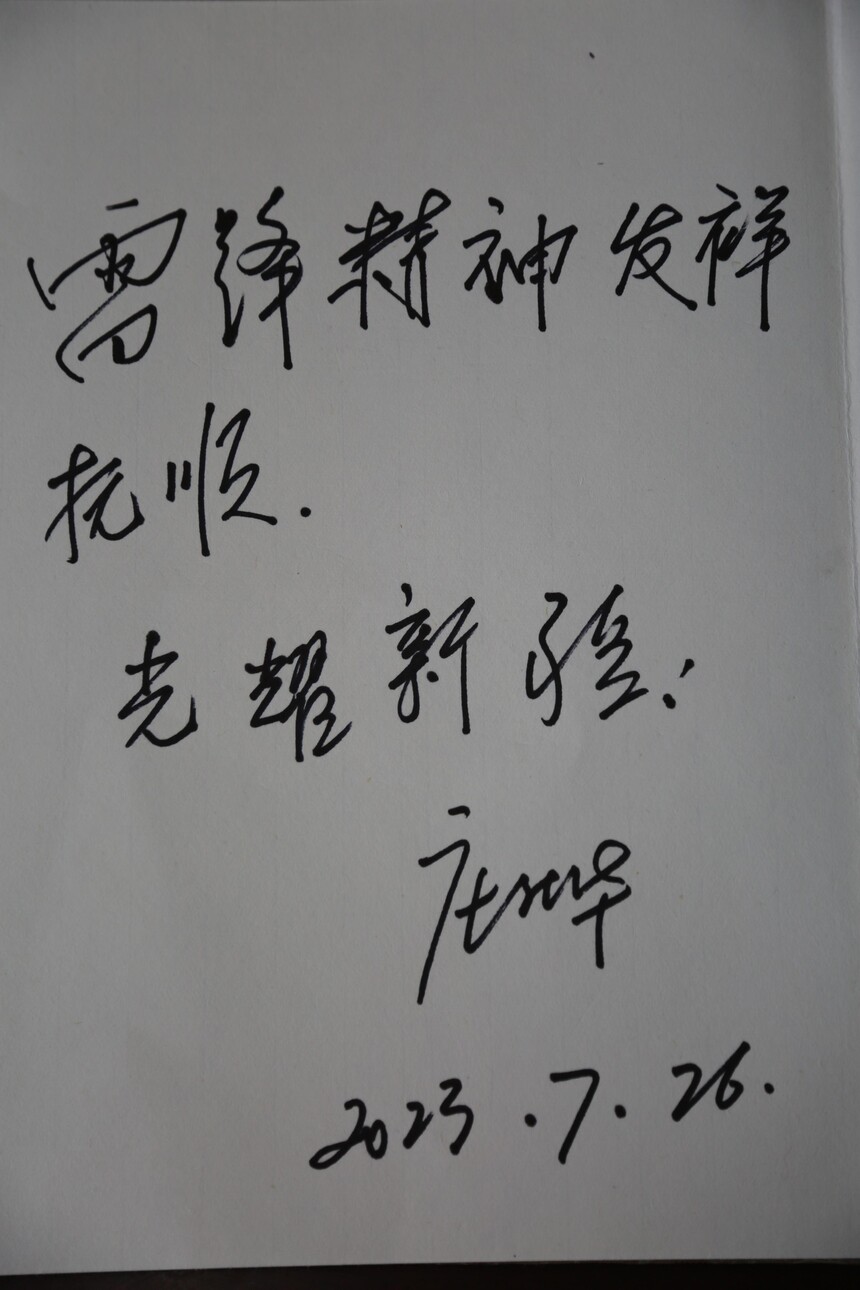 雷锋精神发祥
抚顺.
光耀新疆!
庄仕华
2023.7.26.